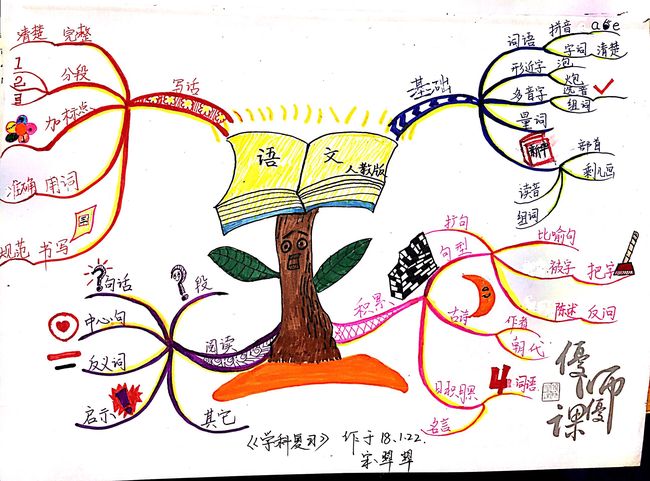 语 文
人教版
基础
词语
拼音
aoe
字词 清楚
形近字
泡
炮
多音字
选音
组词
量词
部首
剩几画
读音
组词
积累
句型
扩句
比喻句
被字 把字
陈述 反问
古诗
作者
朝代
日积月累
4
词语
名言
阅读
段
?句话
中心句
反义词
启示
其它
写话
清楚 完整
分段
1
2
3
加标点
准确 用词
规范 书写
《学科复习》 作于 18.1.22.
優師優課